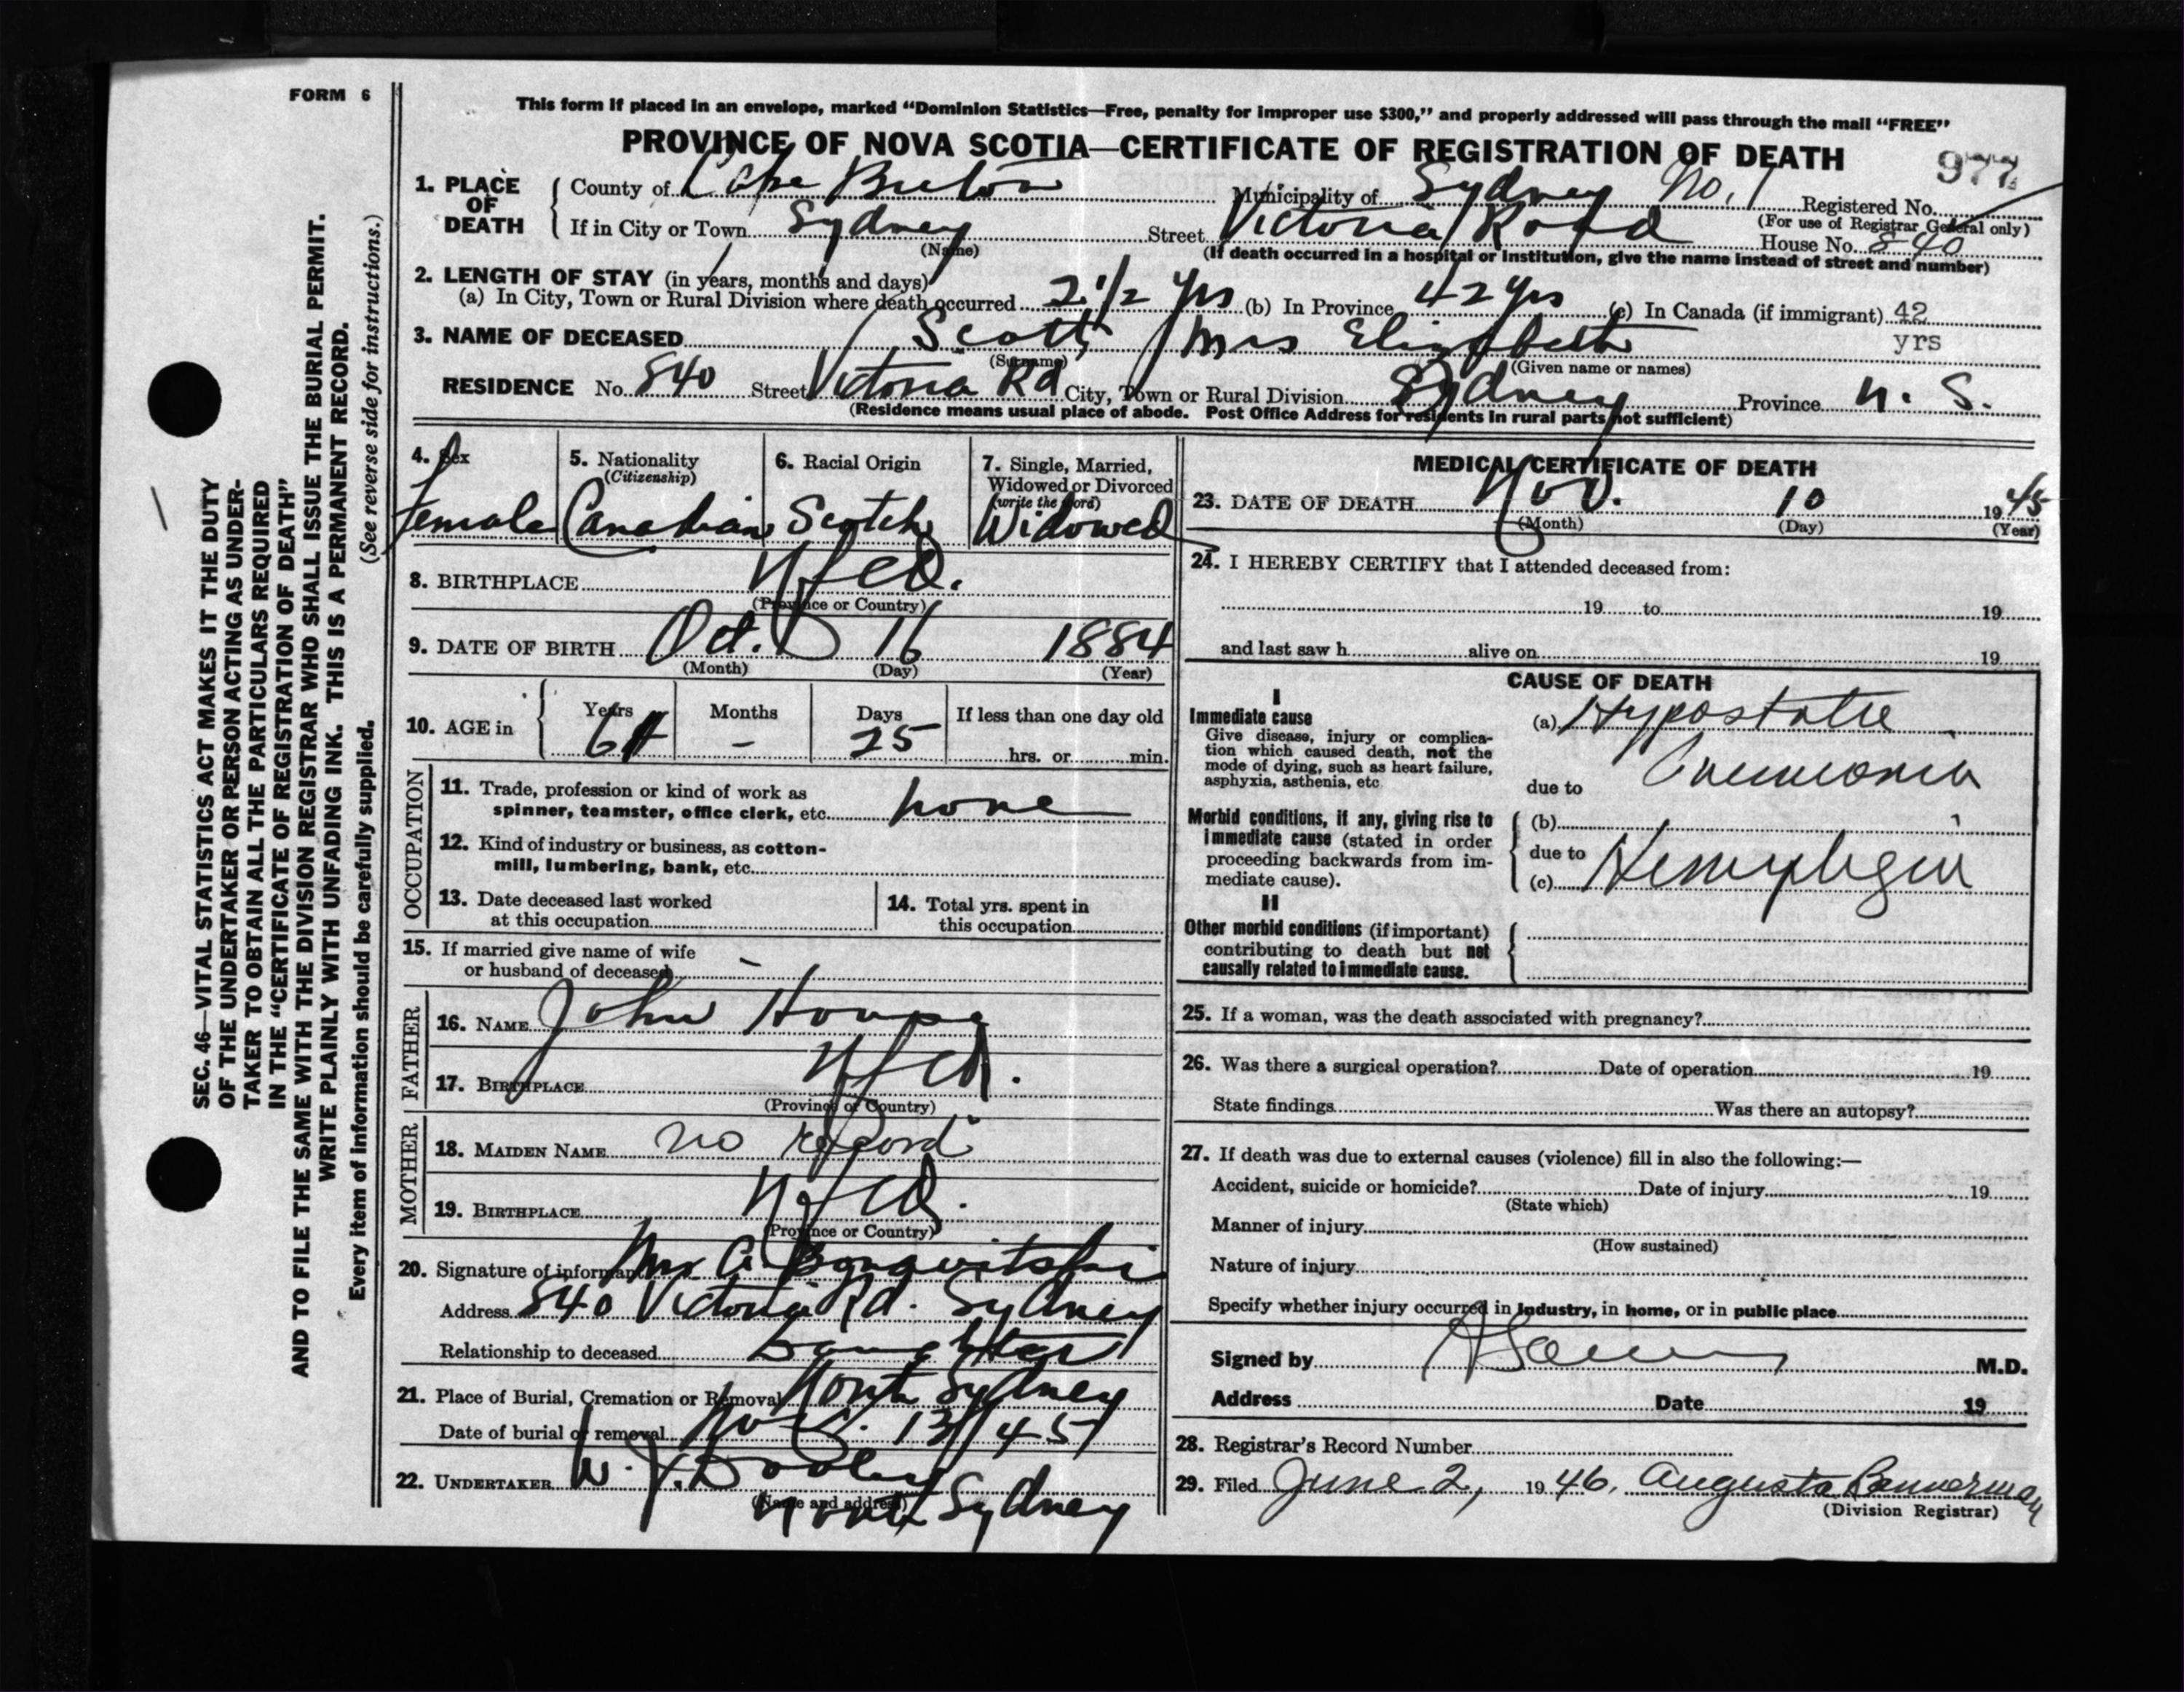 FORM 6
This form if placed in an envelope, marked “Dominion Statistics—Free, penalty for improper use $300,” and properly addressed will pass through the mail “FREE”
PROVINCE OF NOVA SCOTIA—CERTIFICATE OF REGISTRATION OF DEATH
977
1. PLACE OF DEATH { County of Cape Breton Municipality of Sydney No. 1 Registered No.
(For use of Registrar General only)
If in City or Town Sydney Street Victoria Road House No. 840
(Name) (If death occurred in a hospital or institution, give the name instead of street and number)
2. LENGTH OF STAY (in years, months and days)
(a) In City, Town or Rural Division where death occurred 2 1/2 yrs (b) In Province 42 yrs (c) In Canada (if immigrant) 42 yrs
3. NAME OF DECEASED Scott Mrs Elizabeth
(Surname) (Given name or names)
RESIDENCE No. 840 Street Victoria Rd City, Town or Rural Division Sydney Province N. S.
(Residence means usual place of abode. Post Office Address for residents in rural parts not sufficient)
4. Sex 5. Nationality 6. Racial Origin 7. Single, Married,
(Citizenship) Widowed or Divorced
(write the word)
Female Canadian Scotch Widowed
8. BIRTHPLACE Nfld.
(Province or Country)
9. DATE OF BIRTH Oct. 16 1884
(Month) (Day) (Year)
10. AGE in { Years Months Days If less than one day old
61 - 25 hrs. or min.
OCCUPATION
11. Trade, profession or kind of work as
spinner, teamster, office clerk, etc. none
12. Kind of industry or business, as cotton-
mill, lumbering, bank, etc.
13. Date deceased last worked 14. Total yrs. spent in
at this occupation this occupation
15. If married give name of wife
or husband of deceased -
FATHER
16. NAME John
17. BIRTHPLACE Nfld.
(Province or Country)
MOTHER
18. MAIDEN NAME no record
19. BIRTHPLACE Nfld.
(Province or Country)
20. Signature of informant Mrs
Address 840 Victoria Rd. Sydney
Relationship to deceased Daughter
21. Place of Burial, Cremation or Removal North Sydney
Date of burial or removal Nov. 13/45
22. UNDERTAKER W. J. Dooley
(Name and address)
North Sydney
MEDICAL CERTIFICATE OF DEATH
23. DATE OF DEATH Nov. 10 1945
(Month) (Day) (Year)
24. I HEREBY CERTIFY that I attended deceased from:
19 to 19
and last saw h alive on 19
CAUSE OF DEATH
I
Immediate cause (a) Hypostatic
Give disease, injury or complica-
tion which caused death, not the
mode of dying, such as heart failure, Pneumonia
asphyxia, asthenia, etc due to
Morbid conditions, if any, giving rise to { (b)
immediate cause (stated in order
proceeding backwards from im- due to
mediate cause). (c) Hemiplegia
II
Other morbid conditions (if important)
contributing to death but not
causally related to immediate cause.
25. If a woman, was the death associated with pregnancy?
26. Was there a surgical operation? Date of operation 19
State findings Was there an autopsy?
27. If death was due to external causes (violence) fill in also the following:—
Accident, suicide or homicide? Date of injury 19
(State which)
Manner of injury
(How sustained)
Nature of injury
Specify whether injury occurred in industry, in home, or in public place
Signed by M.D.
Address Date 19
28. Registrar's Record Number
29. Filed June 2, 1946. Augusta Bannerman
(Division Registrar)
SEC. 46—VITAL STATISTICS ACT MAKES IT THE DUTY
OF THE UNDERTAKER OR PERSON ACTING AS UNDER-
TAKER TO OBTAIN ALL THE PARTICULARS REQUIRED
IN THE “CERTIFICATE OF REGISTRATION OF DEATH”
AND TO FILE THE SAME WITH THE DIVISION REGISTRAR WHO SHALL ISSUE THE BURIAL PERMIT.
WRITE PLAINLY WITH UNFADING INK. THIS IS A PERMANENT RECORD.
Every item of information should be carefully supplied. (See reverse side for instructions.)